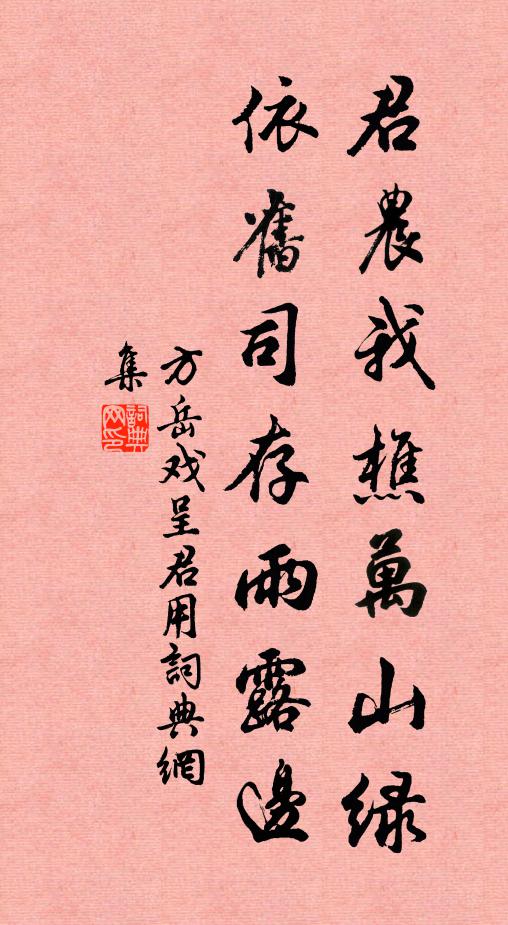 君農我樵萬山緑
依舊司存雨露邊
方岳戏呈君用詞典網
集
詞典
网印